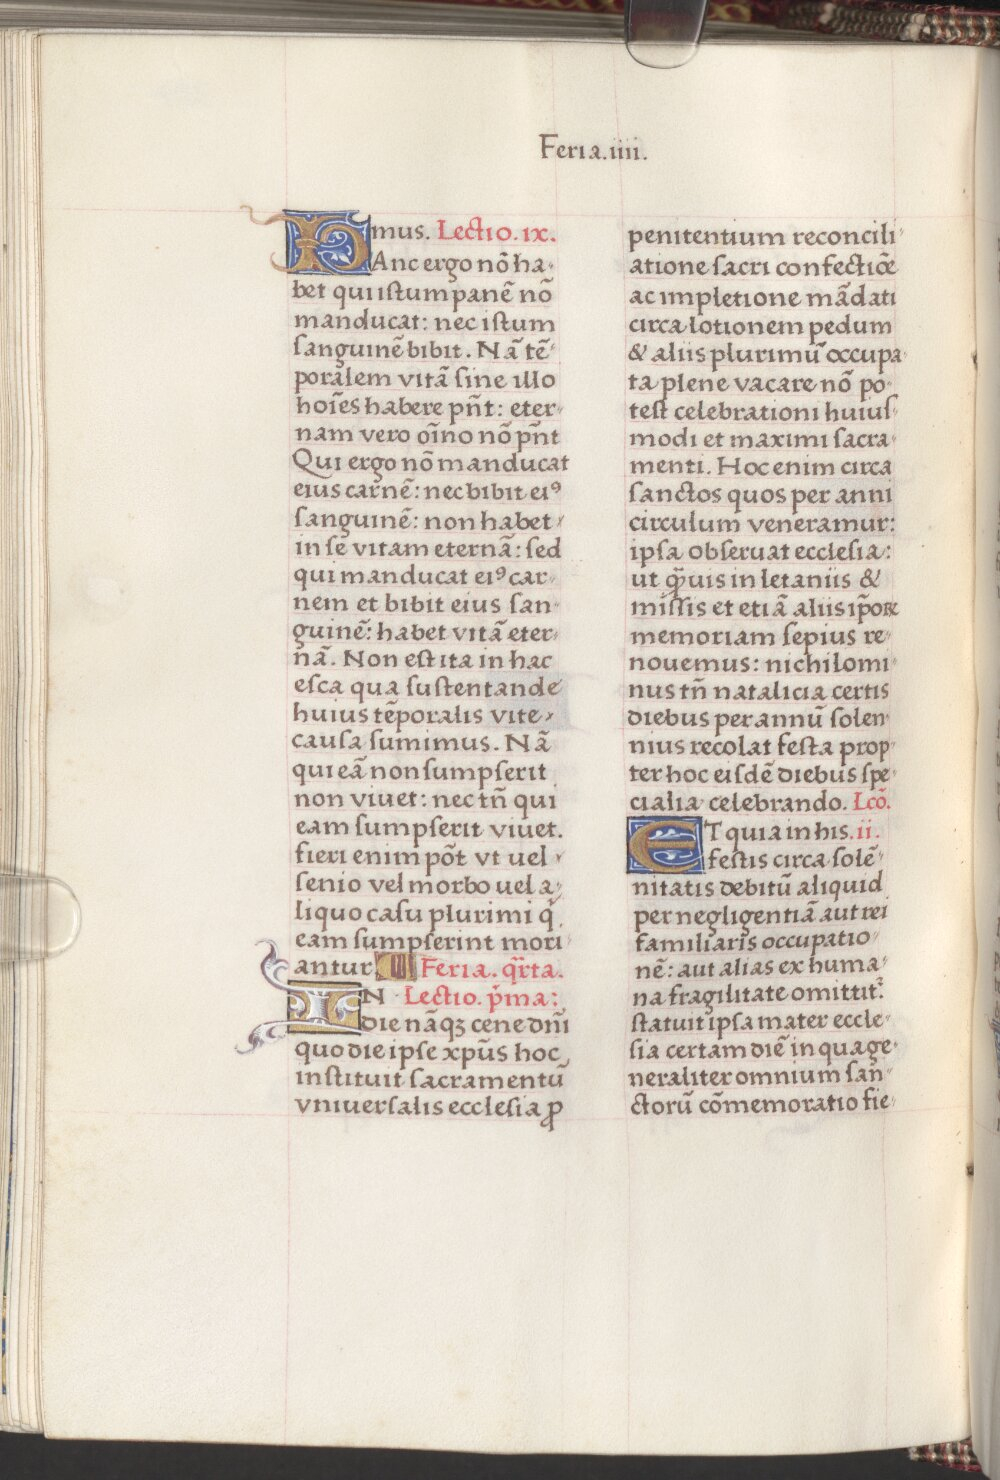 Feria.iiii.
mus. Lectio.ix.
HAnc ergo nō ha-
bet qui istum panē nō
manducat: nec istum
sanguinē bibit. Nā tē-
poralem vitā sine illo
hoīes habere pn̄t: eter-
nam vero oīno nō pn̄t
Qui ergo nō manducat
eius carnē: nec bibit eiꝰ
sanguinē: non habet
in se vitam eternā: sed
qui manducat eiꝰ car-
nem et bibit eius san-
guinē: habet vitā eter-
nā. Non est ita in hac
esca qua sustentande
huius tēporalis vite
causa sumimus. Nā
qui eā non sumpserit
non viuet: nec tn̄ qui
eam sumpserit viuet.
fieri enim pōt vt uel
senio vel morbo uel a-
liquo casu plurimi q̇
eam sumpserint mori-
antur. Feria. qr̄ta.
IN Lectio. p̄ma:
die nāqꝫ cene dn̄i
quo die ipse xp̄us hoc
instituit sacramentū
vniuersalis ecclesia ꝓ
penitentium reconcili-
atione sacri confectiōe
ac impletione mādati
circa lotionem pedum
& aliis plurimū occupa-
ta plene vacare nō po-
test celebrationi huius-
modi et maximi sacra-
menti. Hoc enim circa
sanctos quos per anni
circulum veneramur:
ipsa obseruat ecclesia:
ut qͣuis in letaniis &
missis et etiā aliis ip̄oꝝ
memoriam sepius re-
nouemus: nichilomi-
nus tn̄ natalicia certis
diebus per annū solen-
nius recolat festa prop-
ter hoc eisdē diebus spe-
cialia celebrando. Lcō.
ET quia in his .ii.
festis circa solē-
nitatis debitū aliquid
per negligentiā aut rei
familiaris occupatio-
nē: aut alias ex huma-
na fragilitate omittit᷑:
statuit ipsa mater eccle-
sia certam diē in qua ge-
neraliter omnium san-
ctorū cōmemoratio fie-